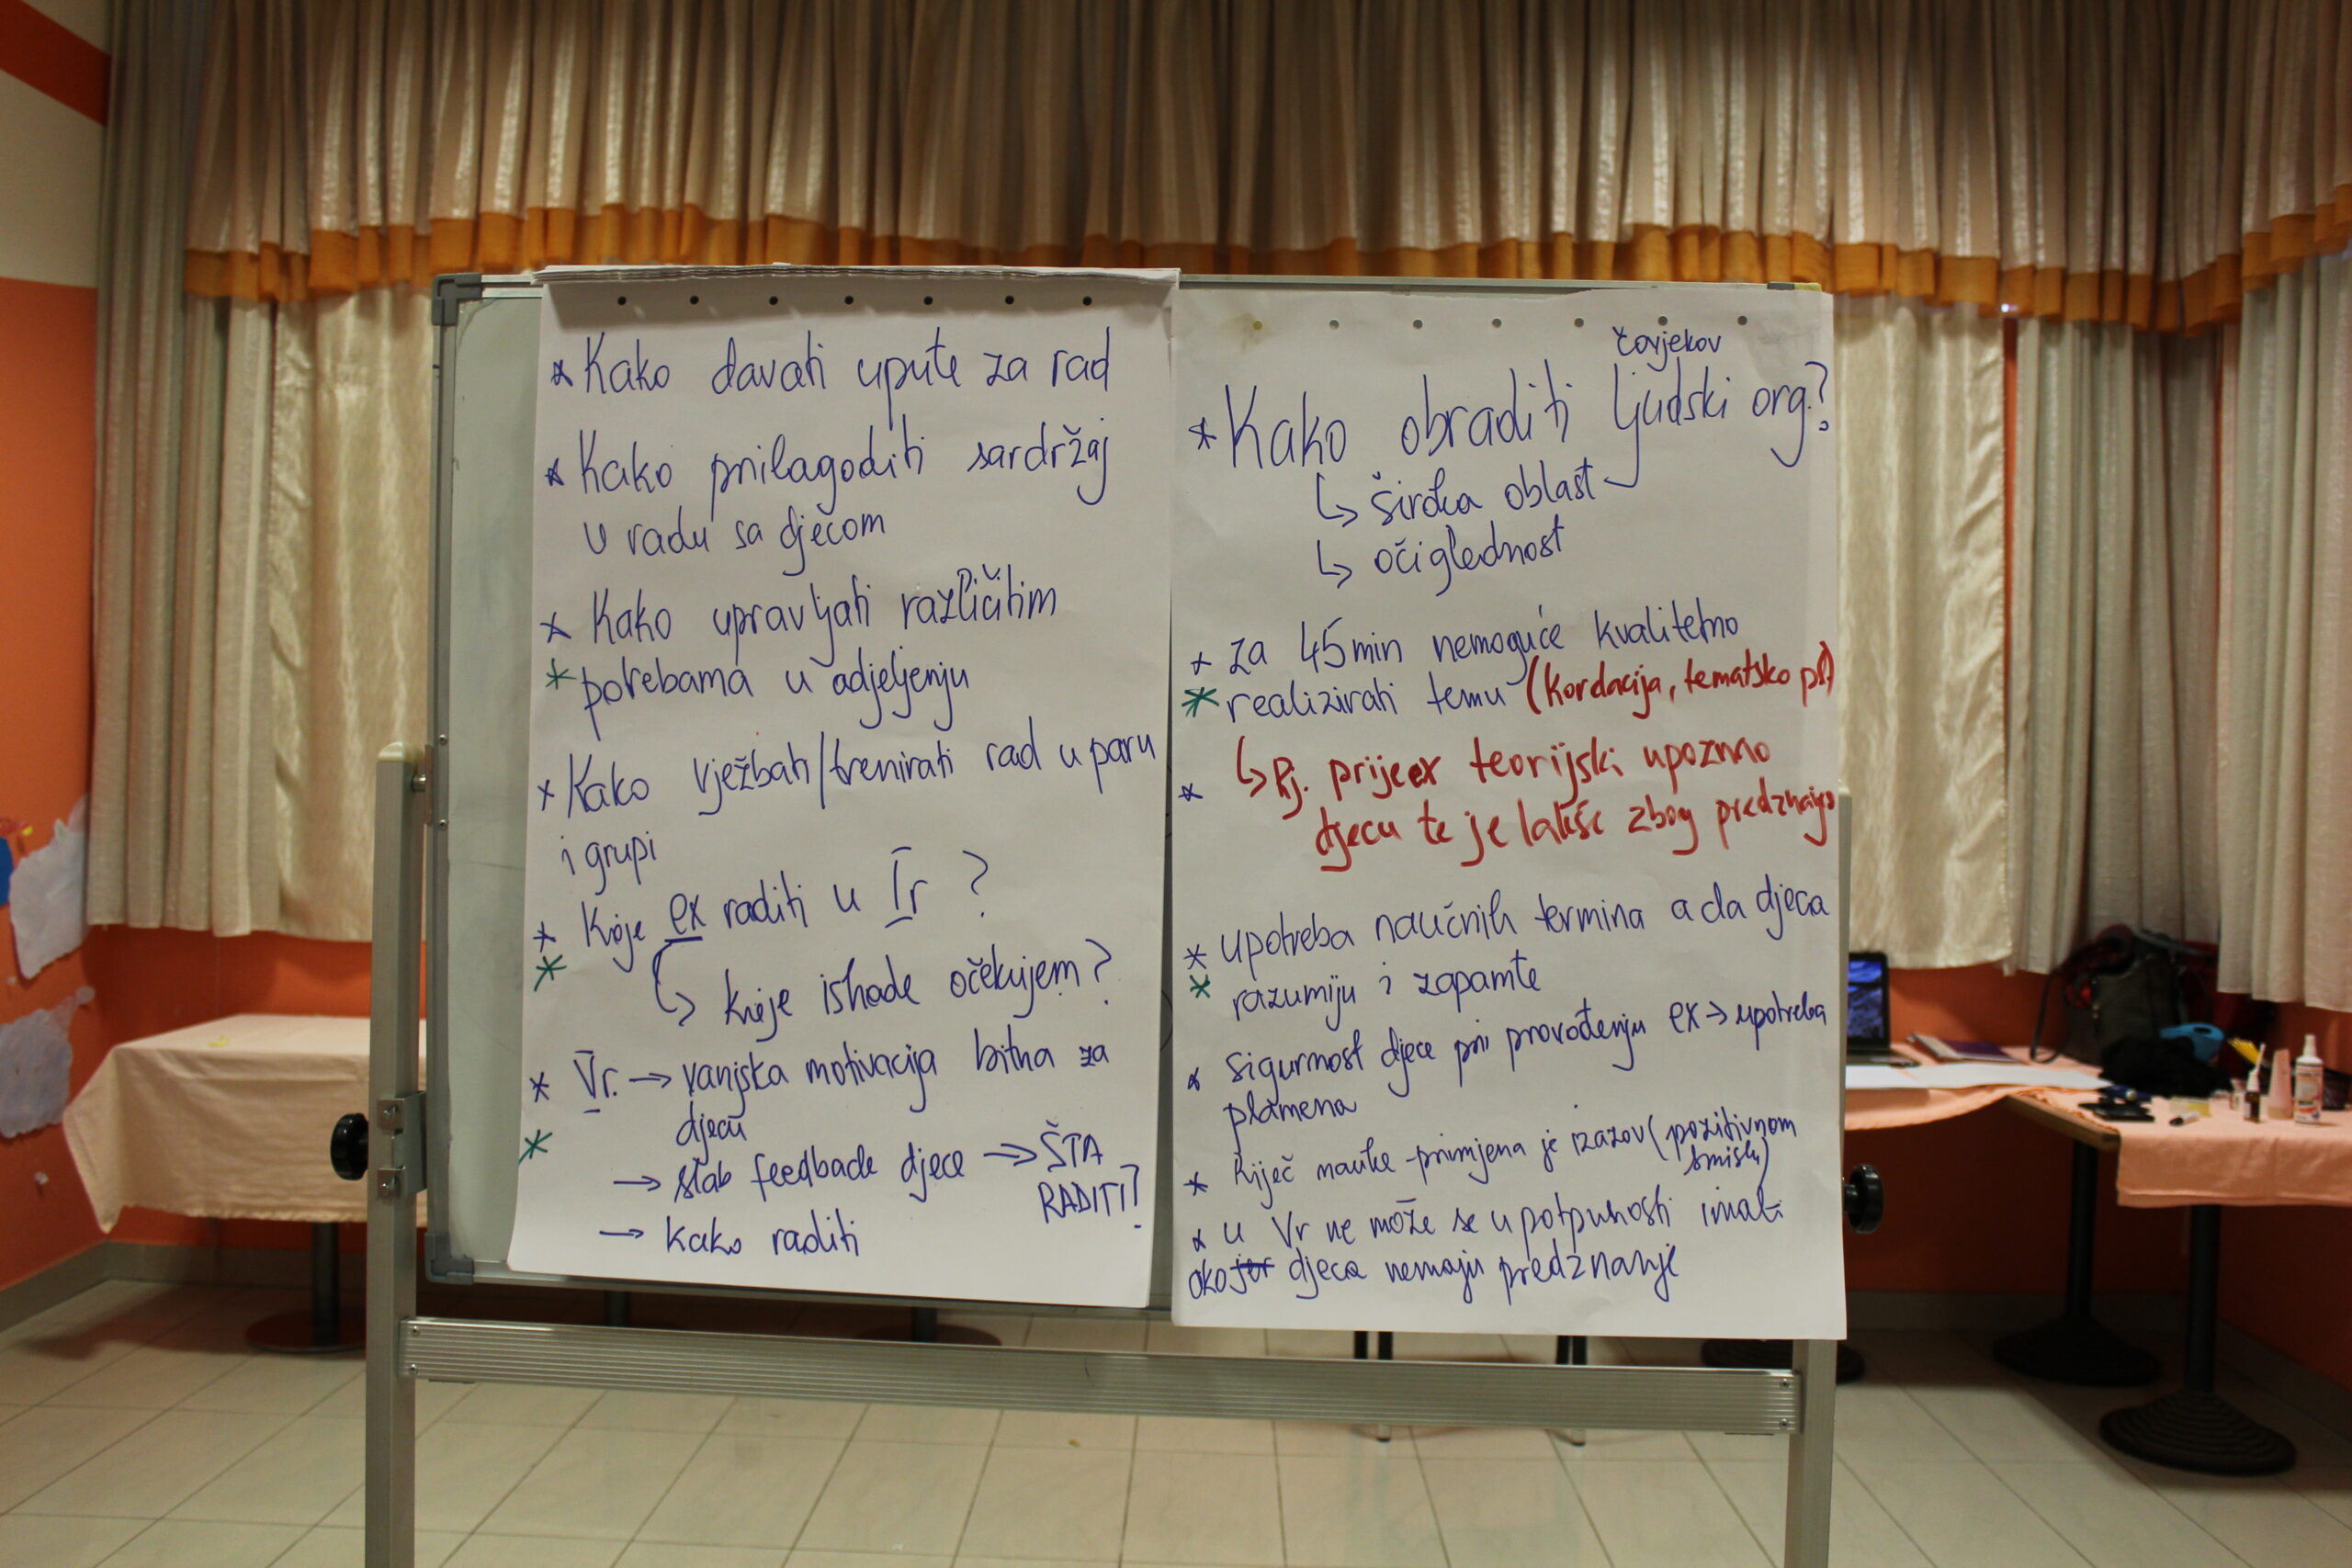 * Kako davati upute za rad
* Kako prilagoditi sardržaj
u radu sa djecom
* Kako upravljati različitim
* potrebama u odjeljenju
* Kako vježbati/trenirati rad u paru
i grupi
* Koje ex raditi u Ir ?
*
↳ koje ishode očekujem?
* Vr. → vanjska motivacija bitna za
djecu
*
→ slab feedback djece → ŠTA
RADITI?
→ kako raditi
čovjekov
* Kako obraditi ljudski org.?
↳ široka oblast
↳ očiglednost
* za 45min nemoguće kvalitetno
* realizirati temu (kordacija, tematsko pl)
↳ Rj. prije ex teorijski upoznao
*
djecu te je lakše zbog predznanja
* upotreba naučnih termina a da djeca
* razumiju i zapamte
* sigurnost djece pri provođenju ex → upotreba
plamena
* Riječ nauke - primjena je izazov (pozitivnom
smislu)
* u Vr ne može se u potpunosti imati
ako jer djeca nemaju predznanje